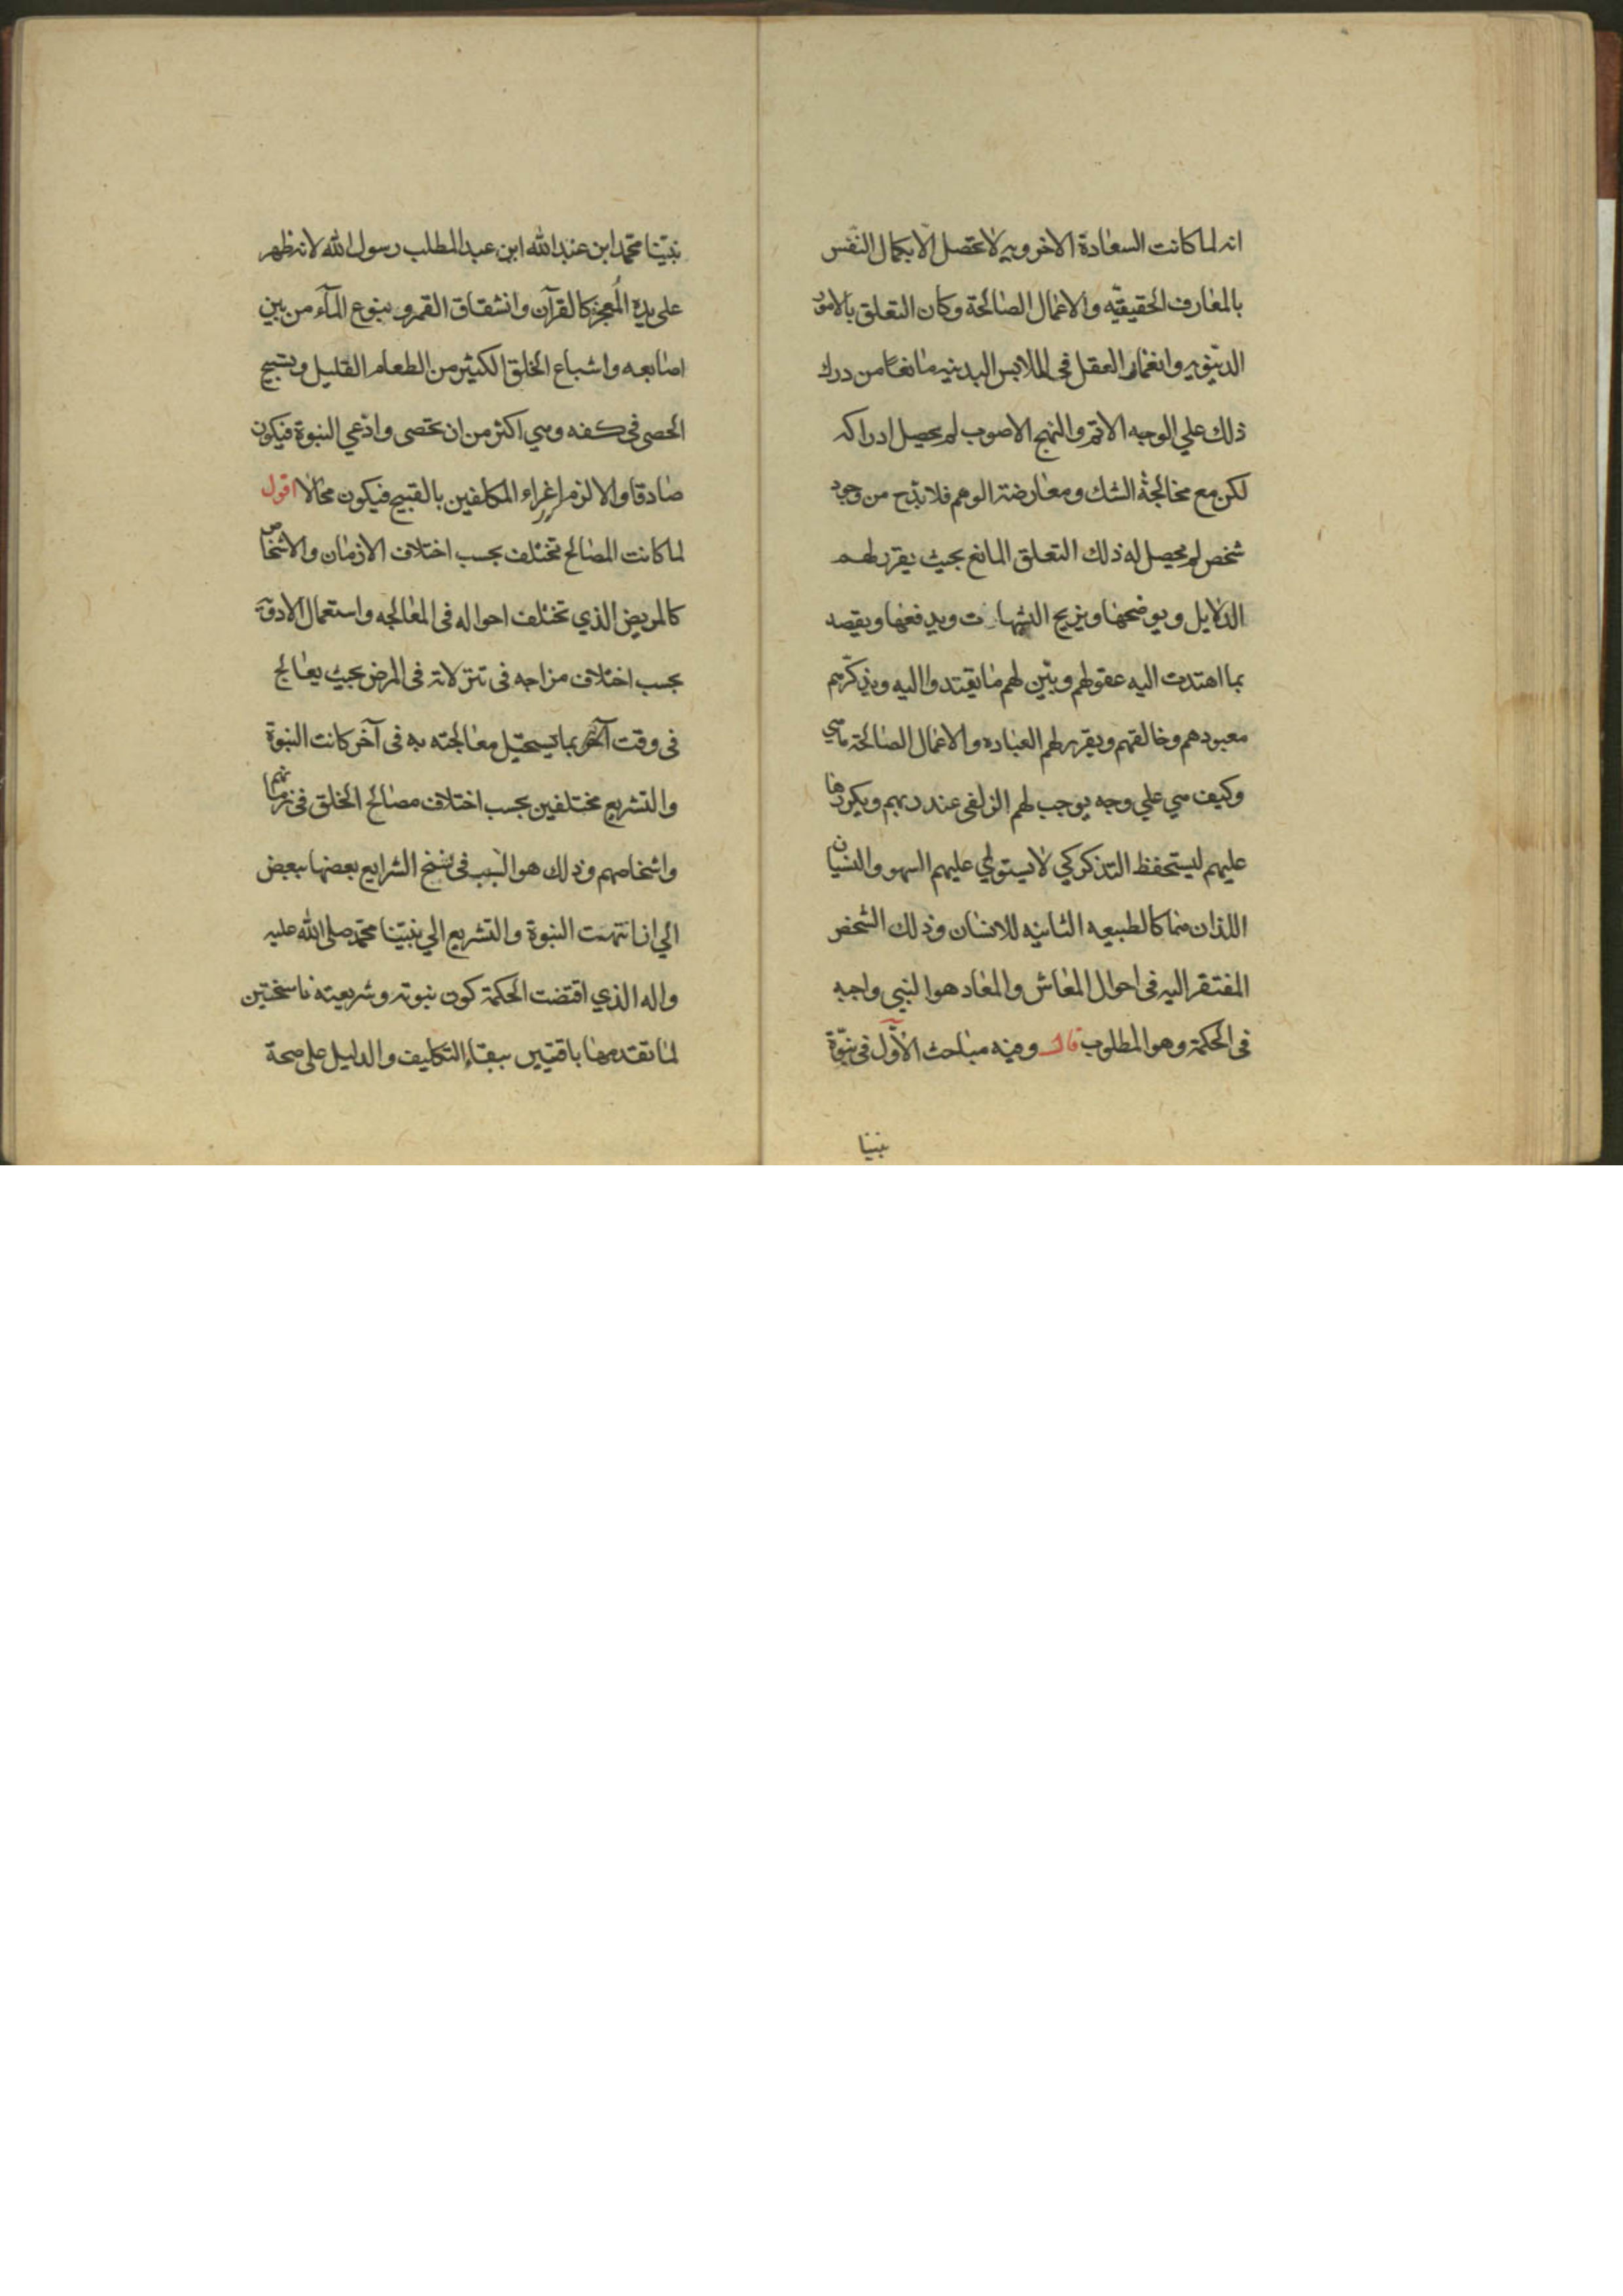 انه لما كانت السعادة الاخرويه لا تحصل الا بكمال النفس
بالمعارف الحقيقيّه والاعمال الصالحة وكان التعلق بالامور
الدنيويه وانغمار العقل فى الملابس البدنيه مانعا من درك
ذلك علي الوجه الاتم والنهج الاصوب لم يحصل ادراكه
لكن مع مخالجة الشك ومعارضة الوهم فلا بد ح من وجود
شخص لم يحصل له ذلك التعلق المانع بحيث يقرر لهم
الدلايل ويوضحها ويزيح الشبهات ويدفعها ويقصه
بما اهتدت اليه عقولهم ويبّين لهم ما يهتدوا اليه ويذكّرهم
معبودهم وخالقهم ويقرر لهم العباده والاعمال الصالحة ما هي
وكيف هي علي وجه يوجب لهم الزلفى عند ربهم ويكررها
عليهم ليستحفظ التذكر كي لا يستولي عليهم السهو والنسيان
اللذان هما كالطبيعه الثانيه للانسان وذلك الشخص
المفتقر اليه فى احوال المعاش والمعاد هو النبى واجبه
فى الحكمة وهو المطلوب قال وفيه مباحث الأوّل فى نبوّة
نبينا
نبيّنا محمّد ابن عبد الله ابن عبد المطلب رسول الله لانه ظهر
على يده المُعجز كالقرآن وانشقاق القمر و ينبوع المآء من بين
اصابعه واشباع الخلق الكثير من الطعام القليل وتسبيح
الحصى فى كفه وهي اكثر من ان تحصى وادّعي النبوة فيكون
صادقا والا لزم إغراء المكلفين بالقبيح فيكون محالا اقول
لما كانت المصالح تختلف بحسب اختلاف الازمان والاشخاص
كالمريض الذي تختلف احواله فى المعالجه واستعمال الادويّة
بحسب اختلاف مزاجه فى تنزلاته فى المرض بحيث يعالج
فى وقت آخر بما يستحيل معالجته به فى آخر كانت النبوة
والتشريع مختلفين بحسب اختلاف مصالح الخلق فى زمانهم
واشخاصهم وذلك هو السّبب فى نسخ الشرايع بعضها ببعض
الي ان انتهت النبوة والتشريع الي نبيّنا محمّد صلى الله عليه
واله الذي اقتضت الحكمة كون نبوته وشريعته ناسختين
لما تقدمها باقيتين ببقاء التكليف والدليل على صحة